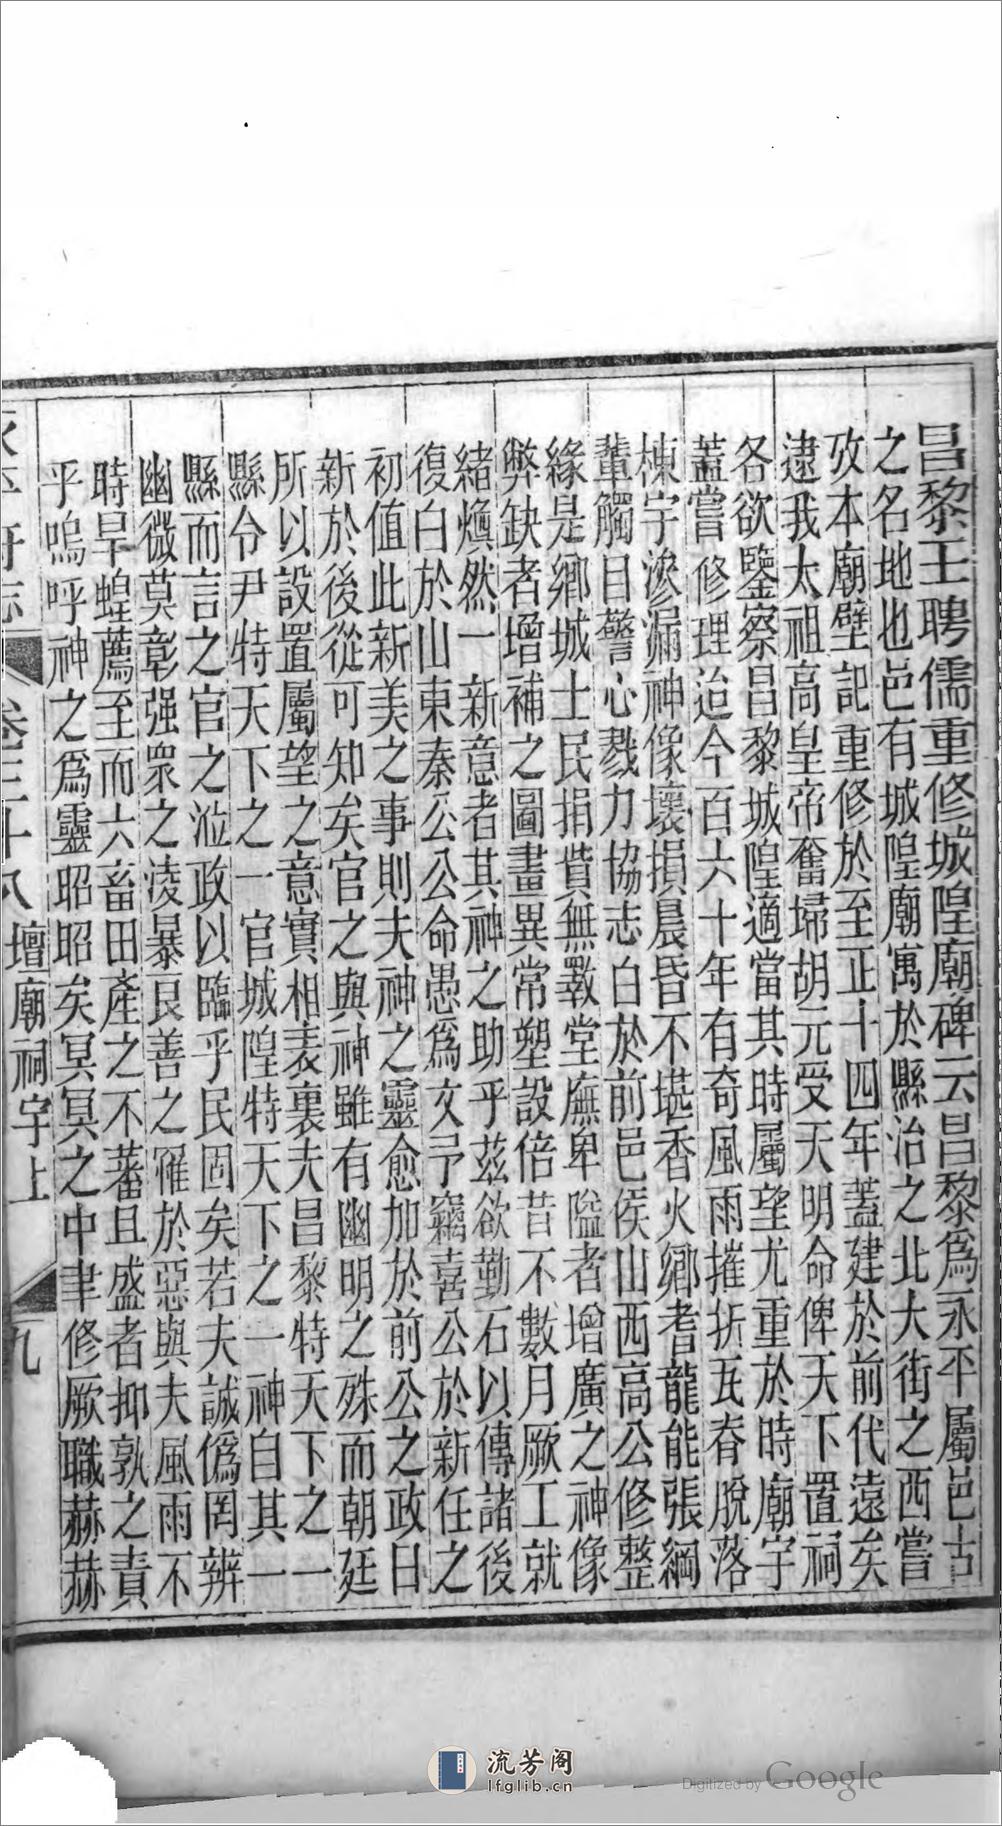 昌黎王聘儒重修城隍廟碑云昌黎爲永平屬邑古
之名地也邑有城隍廟寓於縣治之北大街之西嘗
攷本廟壁記重修於至正十四年蓋建於前代遠矣
逮我太祖高皇帝奮埽胡元受天明命俾天下置祠
各欲鑒察昌黎城隍適當其時屬望尤重於時廟宇
蓋嘗修理迨今百六十年有奇風雨摧折瓦脊脫落
棟宇滲漏神像壞損晨昏不堪香火鄉耆龍能張綱
輩觸目警心戮力協志白於前邑侯山西高公修整
緣是鄉城士民捐貲無斁堂廡卑隘者增廣之神像
弊缺者增補之圖畫異常塑設倍昔不數月厥工就
緒煥然一新意者其神之助乎茲欲勤石以傳諸後
復白於山東秦公公命愚爲文予竊喜公於新任之
初值此新美之事則夫神之靈愈加於前公之政日
新於後從可知矣官之與神雖有幽明之殊而朝廷
所以設置屬望之意實相表裏夫昌黎特天下之一
縣令尹特天下之一官城隍特天下之一神自其一
縣而言之官之涖政以臨乎民固矣若夫誠僞罔辨
幽微莫彰强衆之凌暴良善之罹於惡與夫風雨不
時旱蝗薦至而六畜田產之不蕃且盛者抑孰之責
乎嗚呼神之爲靈昭昭矣冥冥之中聿修厥職赫赫
永平府志 卷三十八 壇廟祠宇上 九
流芳阁
lfglib.cn
Digitized by Google